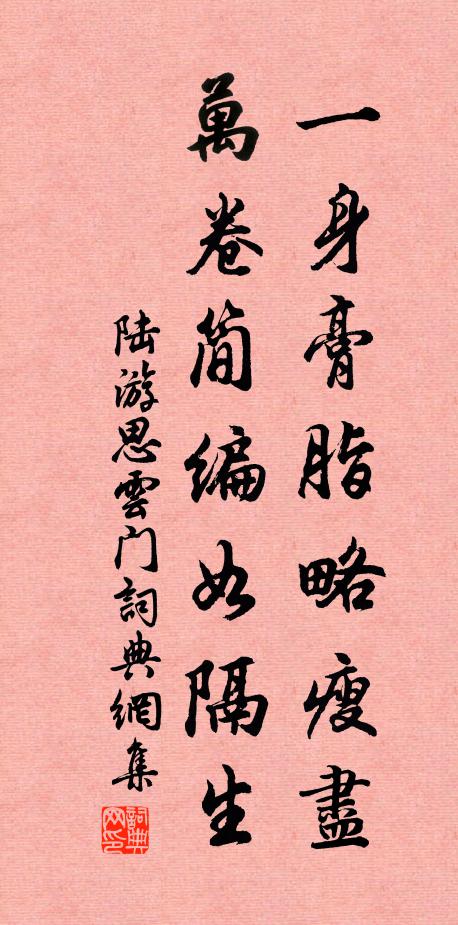 一身膏脂略瘦盡
萬卷简编如隔生
陆游思雲门詞典網集
詞典网印